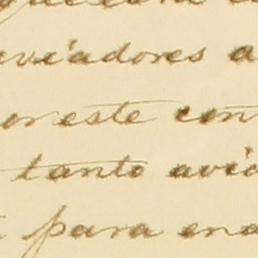 aviadores a
or este con
tanto avia
para ena